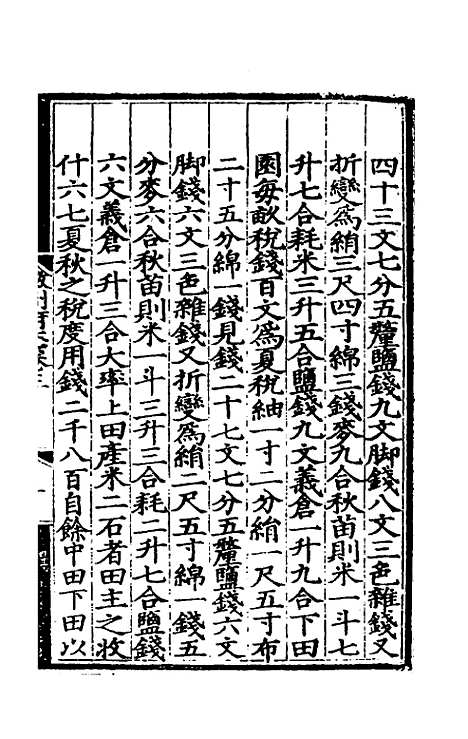 四十三文七分五釐鹽錢九文脚錢八文三色雜錢又
折變爲絹三尺四寸綿三錢麥九合秋苗則米一斗七
升七合耗米三升五合鹽錢九文義倉一升九合下田
園每畝稅錢百文爲夏稅紬一寸二分絹一尺五寸布
二寸五分綿一錢見錢二十七文七分五釐鹽錢六文
脚錢六文三色雜錢又折變爲絹二尺五寸綿一錢五
分麥六合秋苗則米一斗三升三合耗二升七合鹽錢
六文義倉一升三合大率上田產米二石者田主之收
什六七夏秋之稅度用錢二千八百自餘中田下田以